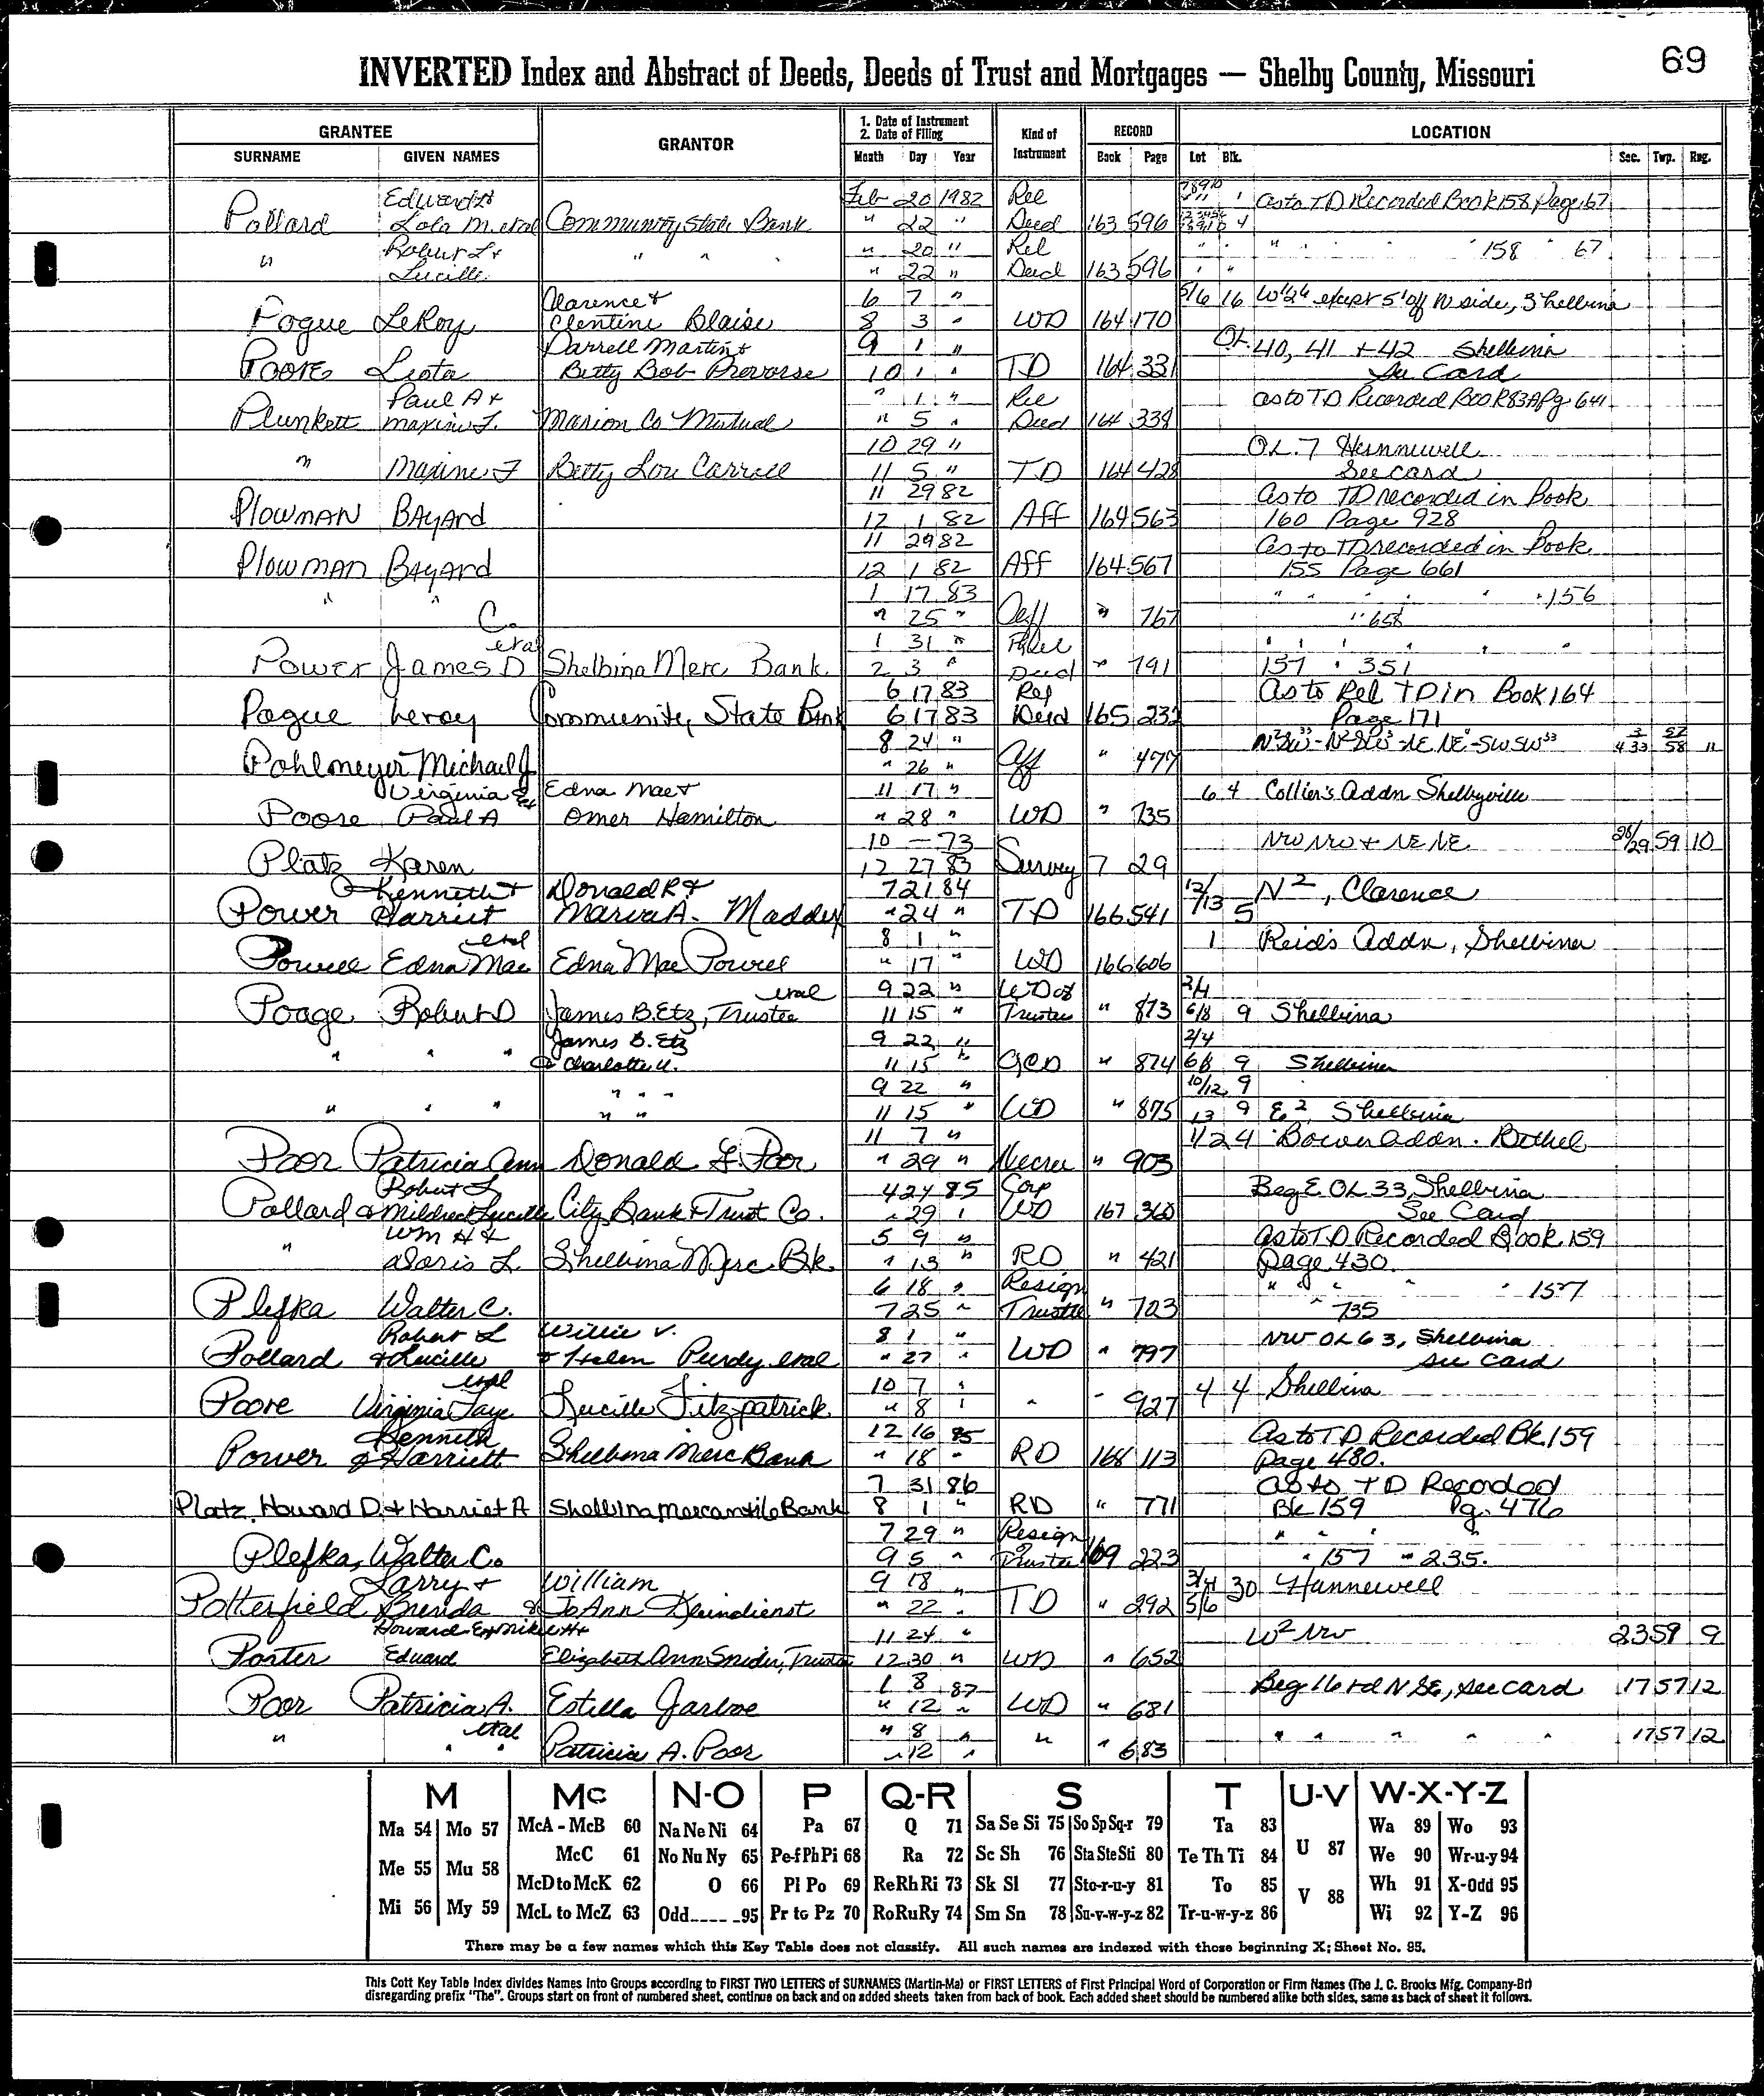 69
INVERTED Index and Abstract of Deeds, Deeds of Trust and Mortgages — Shelby County, Missouri
GRANTEE GRANTOR 1. Date of Instrument 2. Date of Filing Kind of Instrument RECORD LOCATION
SURNAME GIVEN NAMES Month Day Year Book Page Lot Blk. Sec. Twp. Rng.
Edward & Feb 20 1982 Rel 1 as to TD Recorded Book 158 Page 67
Pollard Lola M. etal Community State Bank " 22 " Deed 163 596 4
Robert L + " 20 " Rel " " " 158 " 67
" Lucille " " " " 22 " Deed 163 596 " "
Clarence + 6 7 " 5/6 16 W 26 except 5' off N side, Shelbina
Pogue LeRoy Clentine Blaise 8 3 " WD 164 170
Darrell Martin + 9 1 " OL 40, 41 + 42 Shelbina
Poore Leota Betty Bob Prevorse 10 1 " TD 164 331 See Card
Paul A + " 1 " Rel as to TD Recorded Book 83A Pg 641
Plunkett Maxine F. Marion Co Mutual " 5 " Deed 164 338
10 29 " OL. 7 Hunnewell
" Maxine F Betty Lou Carroll 11 5 " TD 164 428 See card
11 29 82 as to TD recorded in Book
Plowman Bayard 12 1 82 Aff 164 563 160 Page 928
11 29 82 as to TD recorded in Book
Plowman Bayard 12 1 82 Aff 164 567 155 Page 661
1 17 83 " " " " " 156
" " C. " 25 " Aff " 767 " 658
etal 1 31 " " " " " "
Power James D Shelbina Merc Bank 2 3 " Deed " 791 157 " 351
6 17 83 Rel As to Rel TD in Book 164
Pogue Leroy Community State Bank 6 17 83 Deed 165 232 Page 171
8 24 " 3 57
Pohlmeyer Michael J " 26 " Aff " 477 4 33 58 11
Virginia & Edna Mae + 11 17 " 6 4 Collier's Addn Shelbyville
Poose Paul A Omer Hamilton " 28 " WD " 735
10 — 73 NW NW + NE NE 28/29 59 10
Platz Karen 12 27 83 Survey 7 29
Kenneth + Donald R + 7 21 84 12/13 5 N², Clarence
Power Harriet Maria A. Maddex " 24 " TD 166 541
etal 8 1 " 1 Reid's Addn, Shelbina
Powell Edna Mae Edna Mae Powell " 17 " WD 166 606
etal 9 22 " WD of 2/4
Poage Robert D James B. Etz, Trustee 11 15 " Trustee " 873 6/8 9 Shelbina
James B. Etz 9 22 " 2/4
" " " & Charlotte U. 11 15 " GCD " 874 6/8 9 Shelbina
" " " 9 22 " 10/12 9
" " " " " 11 15 " WD " 875 13 9 E², Shelbina
11 7 " 1/2 4 Bower Addn. Bethel
Poor Patricia Ann Donald L. Poor " 29 " Decree " 903
Robert L 4 24 85 Corp Beg E OL 33, Shelbina
Pollard & Mildred Lucille City Bank & Trust Co. " 29 " WD 167 360 See Card
Wm H & 5 9 " As to T.D Recorded Book 159
" Doris L. Shelbina Merc Bk. " 13 " RD " 421 Page 430.
6 18 " Resign " " " " 157
Plefka Walter C. 7 25 " Trustee " 723 " 735
Robert L Willie V. 8 1 " NW OL 63, Shelbina
Pollard & Lucille & Helen Purdy etal " 27 " WD " 797 See card
etal 10 7 " 4 4 Shelbina
Poore Virginia Faye Lucille Fitzpatrick " 8 " " " 927
Kenneth 12 16 85 As to T.D Recorded Bk. 159
Power & Harriett Shelbina Merc Bank " 18 " RD 168 113 Page 480.
7 31 86 as to TD Recorded
Platz, Howard D. & Harriet A Shelbina Mercantile Bank 8 1 " RD " 771 Bk 159 Pg. 476
7 29 " Resign " " " "
Plefka, Walter C. 9 5 " Trustee 169 223 " 157 " 235.
Larry + William 9 18 " 3/4 30 Hunnewell
Potterfield Brenda & JoAnn Kleindienst " 22 " TD " 292 5/6
11 24 " W² NW 23 59 9
Porter Edward Elizabeth Ann Snider, Trustee 12 30 " WD " 652
1 8 87 Beg 16 rd N SE, see card 17 57 12
Poor Patricia A. Estella Jarboe " 12 " WD " 681
etal " 8 " " " " " " 17 57 12
" " " Patricia A. Poor " 12 " " " 683
M Mc N-O P Q-R S T U-V W-X-Y-Z
Ma 54 Mo 57 McA - McB 60 Na Ne Ni 64 Pa 67 Q 71 Sa Se Si 75 So Sp Sq-r 79 Ta 83 U 87 Wa 89 Wo 93
Me 55 Mu 58 McC 61 No Nu Ny 65 Pe-f Ph Pi 68 Ra 72 Sc Sh 76 Sta Ste Sti 80 Te Th Ti 84 We 90 Wr-u-y 94
McD to McK 62 O 66 Pl Po 69 Re Rh Ri 73 Sk Sl 77 Sto-r-u-y 81 To 85 V 88 Wh 91 X-Odd 95
Mi 56 My 59 McL to McZ 63 Odd 95 Pr to Pz 70 Ro Ru Ry 74 Sm Sn 78 Su-v-w-y-z 82 Tr-u-w-y-z 86 Wi 92 Y-Z 96
There may be a few names which this Key Table does not classify. All such names are indexed with those beginning X; Sheet No. 95.
This Cott Key Table Index divides Names into Groups according to FIRST TWO LETTERS of SURNAMES (Martin-Ma) or FIRST LETTERS of First Principal Word of Corporation or Firm Names (The J. C. Brooks Mfg. Company-Br)
disregarding prefix "The". Groups start on front of numbered sheet, continue on back and on added sheets taken from back of book. Each added sheet should be numbered alike both sides, same as back of sheet it follows.